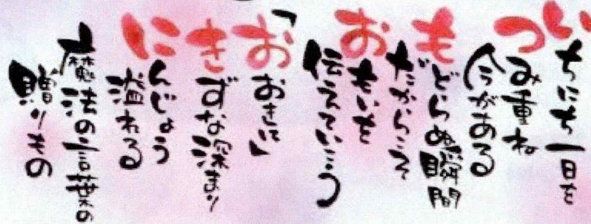 いちにち一日を
つみ重ね
今がある
もどらぬ瞬間
だからこそ
おもいを
伝えていこう
「おおきに」
きずな深まり
にんじょう
溢れる
魔法の言葉の
贈りもの